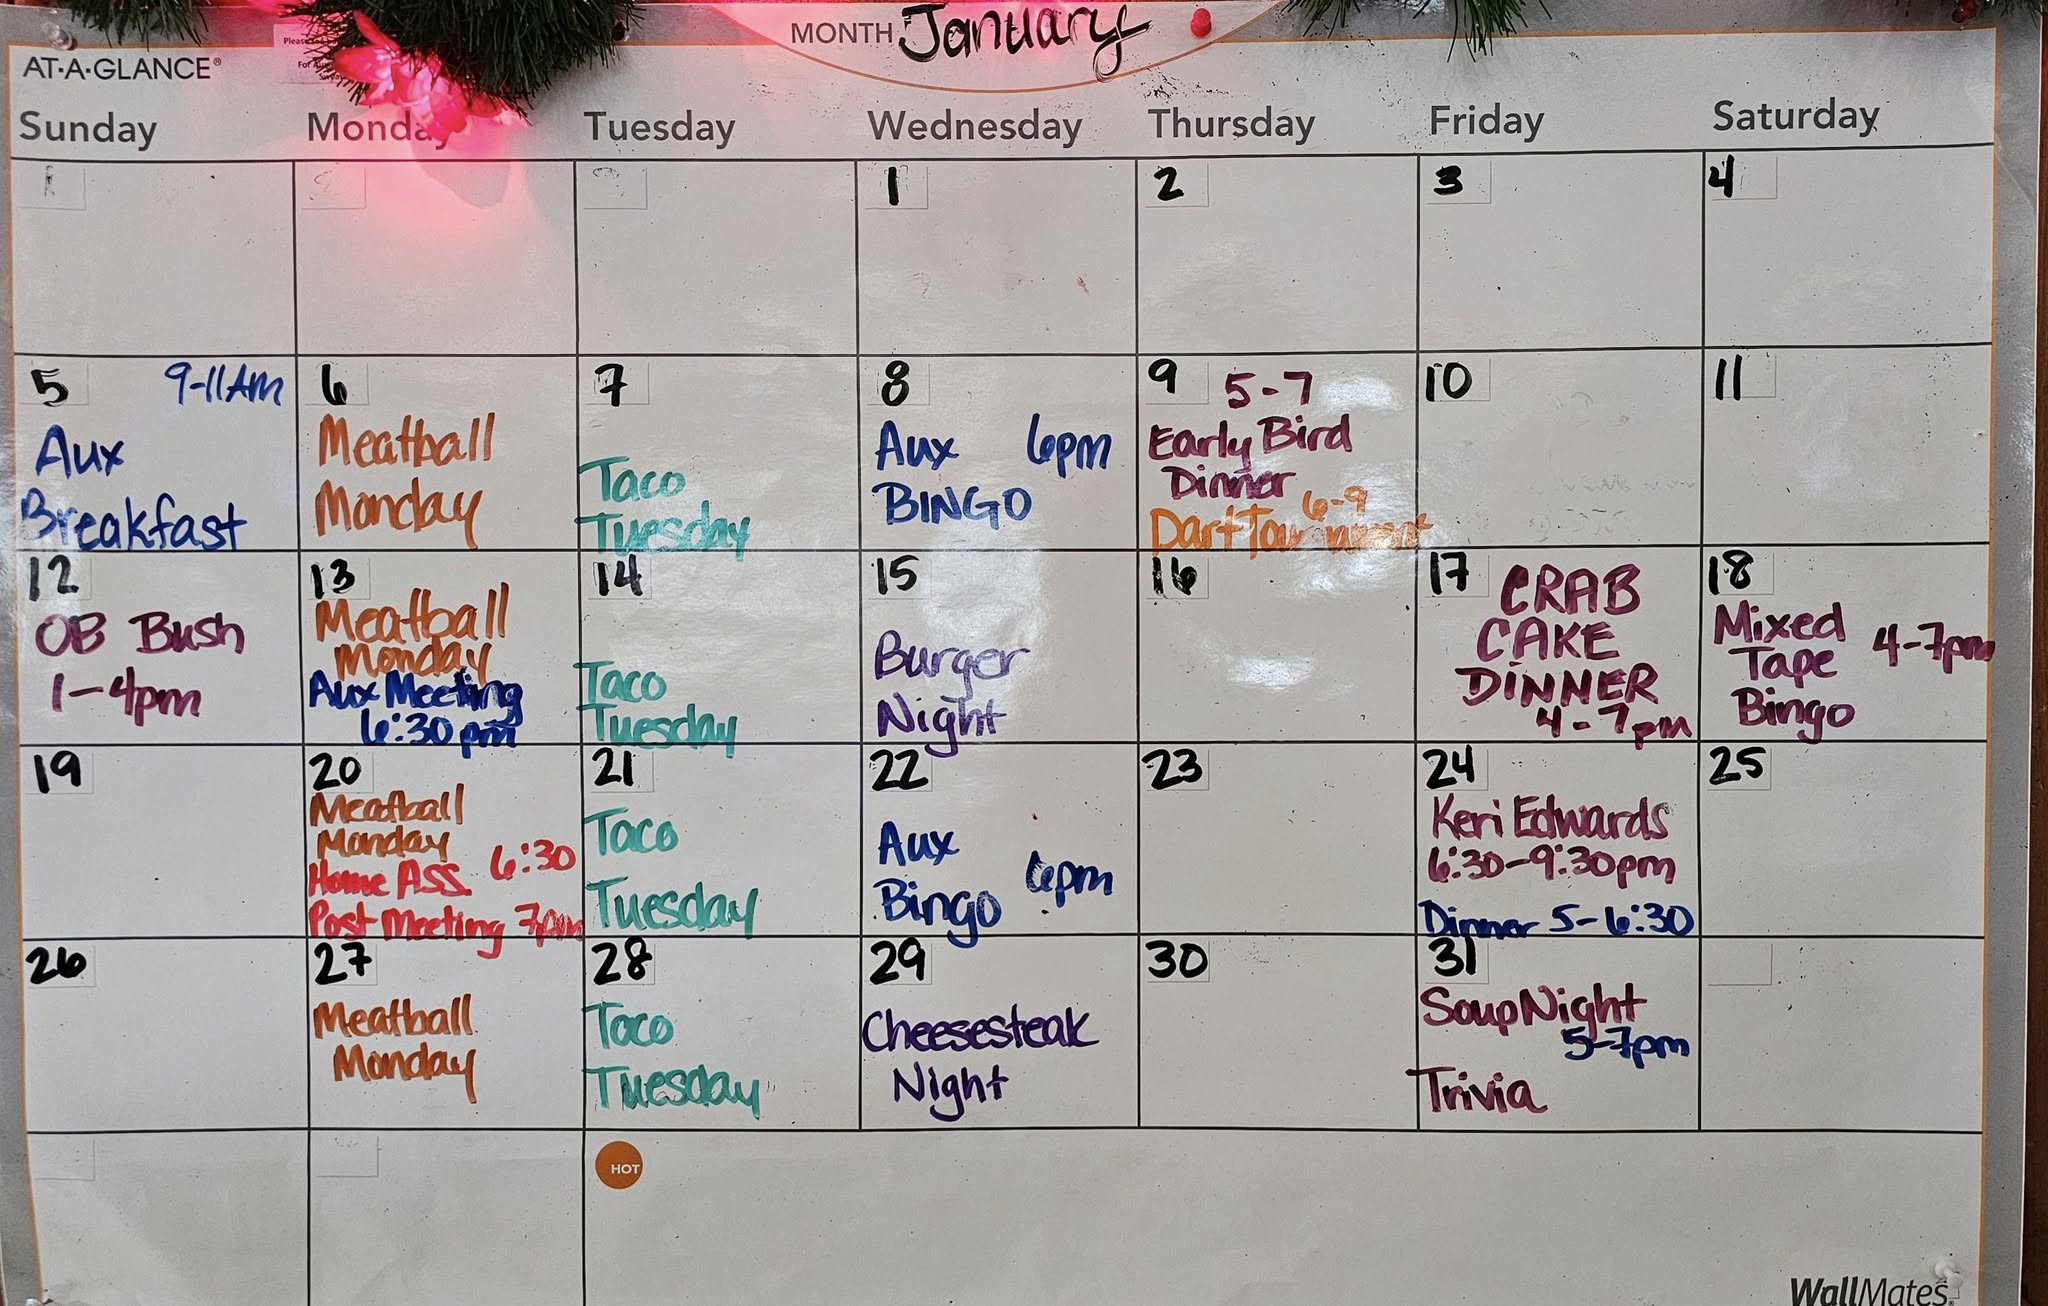 MONTH January
AT-A-GLANCE®
Sunday Monday Tuesday Wednesday Thursday Friday Saturday
1
2
3
4
5 9-11AM
Aux
Breakfast
6
Meatball
Monday
7
Taco
Tuesday
8
Aux 6pm
BINGO
9 5-7
Early Bird
Dinner
6-9
Dart Tournament
10
11
12
OB Bush
1-4pm
13
Meatball
Monday
Aux Meeting
6:30 pm
14
Taco
Tuesday
15
Burger
Night
16
17 CRAB
CAKE
DINNER
4-7pm
18
Mixed
Tape 4-7pm
Bingo
19
20
Meatball
Monday
Home ASS. 6:30
Post Meeting 7pm
21
Taco
Tuesday
22
Aux
Bingo 6pm
23
24
Keri Edwards
6:30-9:30pm
Dinner 5-6:30
25
26
27
Meatball
Monday
28
Taco
Tuesday
29
Cheesesteak
Night
30
31
Soup Night
5-7pm
Trivia
HOT
WallMates®